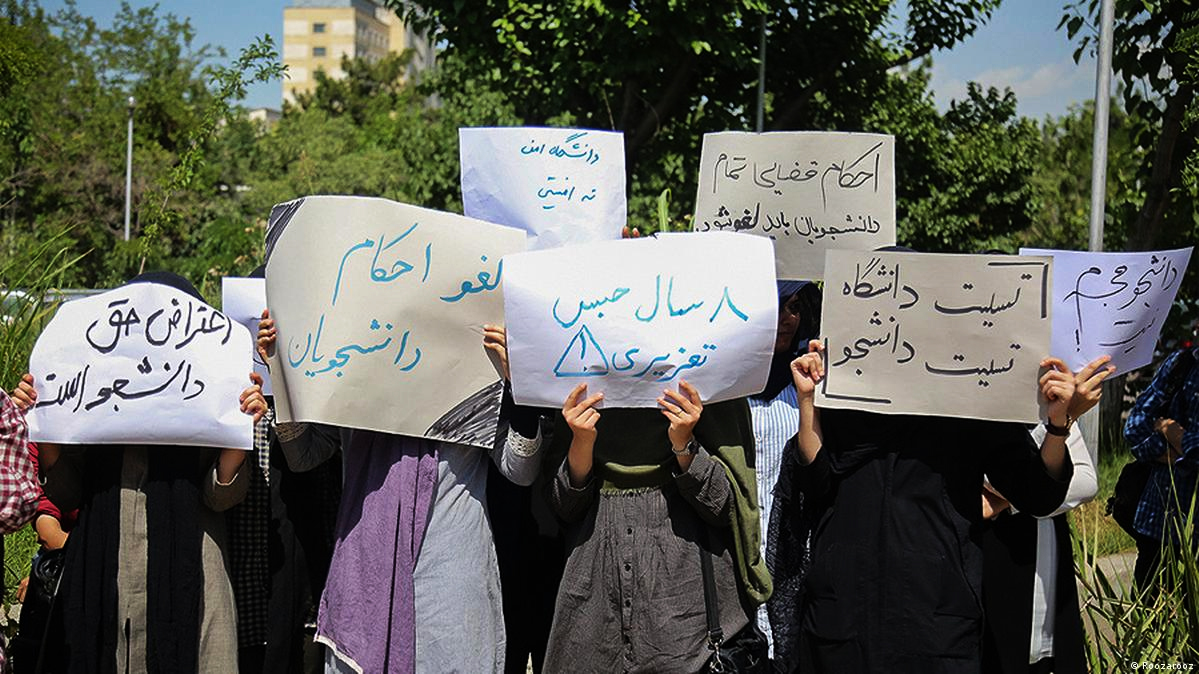 دانشگاه امن
نه امنیتی
احکام قضایی تمام
دانشجویان باید لغو شود.
اعتراض حق
دانشجو است
لغو احکام
دانشجویان
۸ سال حبس
تعزیری!
تسلیت دانشگاه
تسلیت دانشجو
دانشجو مجرم
نیست!
© Roozarooz